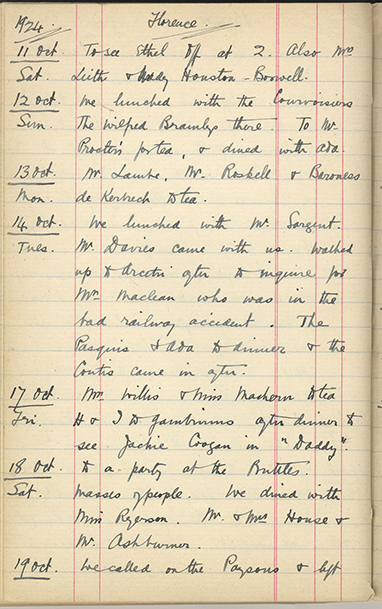 1924. Florence.
11 Oct. To see Ethel off at 2. Also Mrs
Sat. Leith & Lady Houston-Boswell.
12 Oct. We lunched with the Courvoisiers
Sun. The Wilfred Bramleys there. To Mr.
Procter's for tea, & dined with Ada.
13 Oct. Mr. Laube, Mr. Roskell & Baroness
Mon. de Kerbrech to tea.
14 Oct. We lunched with Mr. Sargent.
Tues. Mr. Davies came with us. Walked
up to after to inquire for
Mrs. Maclean who was in the
bad railway accident. The
& Ada to dinner & the
came in after.
17 Oct. Mrs. Willis & Miss Machern to tea
Fri. H & I to Gambrinus after dinner to
see Jackie Coogan in "Daddy".
18 Oct. to a party at the Buttles.
Sat. Masses of people. We dined with
Miss Ryerson. Mr. & Mrs House &
Mr. Ashburner.
19 Oct. We called on the Paysons & left